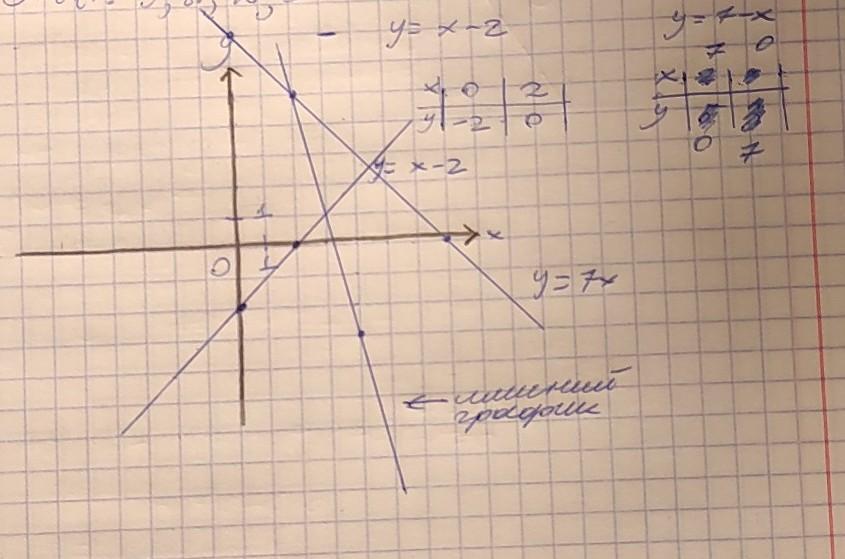 y = x - 2
y = 7 - x
7 0
x 0 2
y -2 0
x
y
0 7
y
y = x - 2
1
x
0
1
y = 7x
← лишний
график